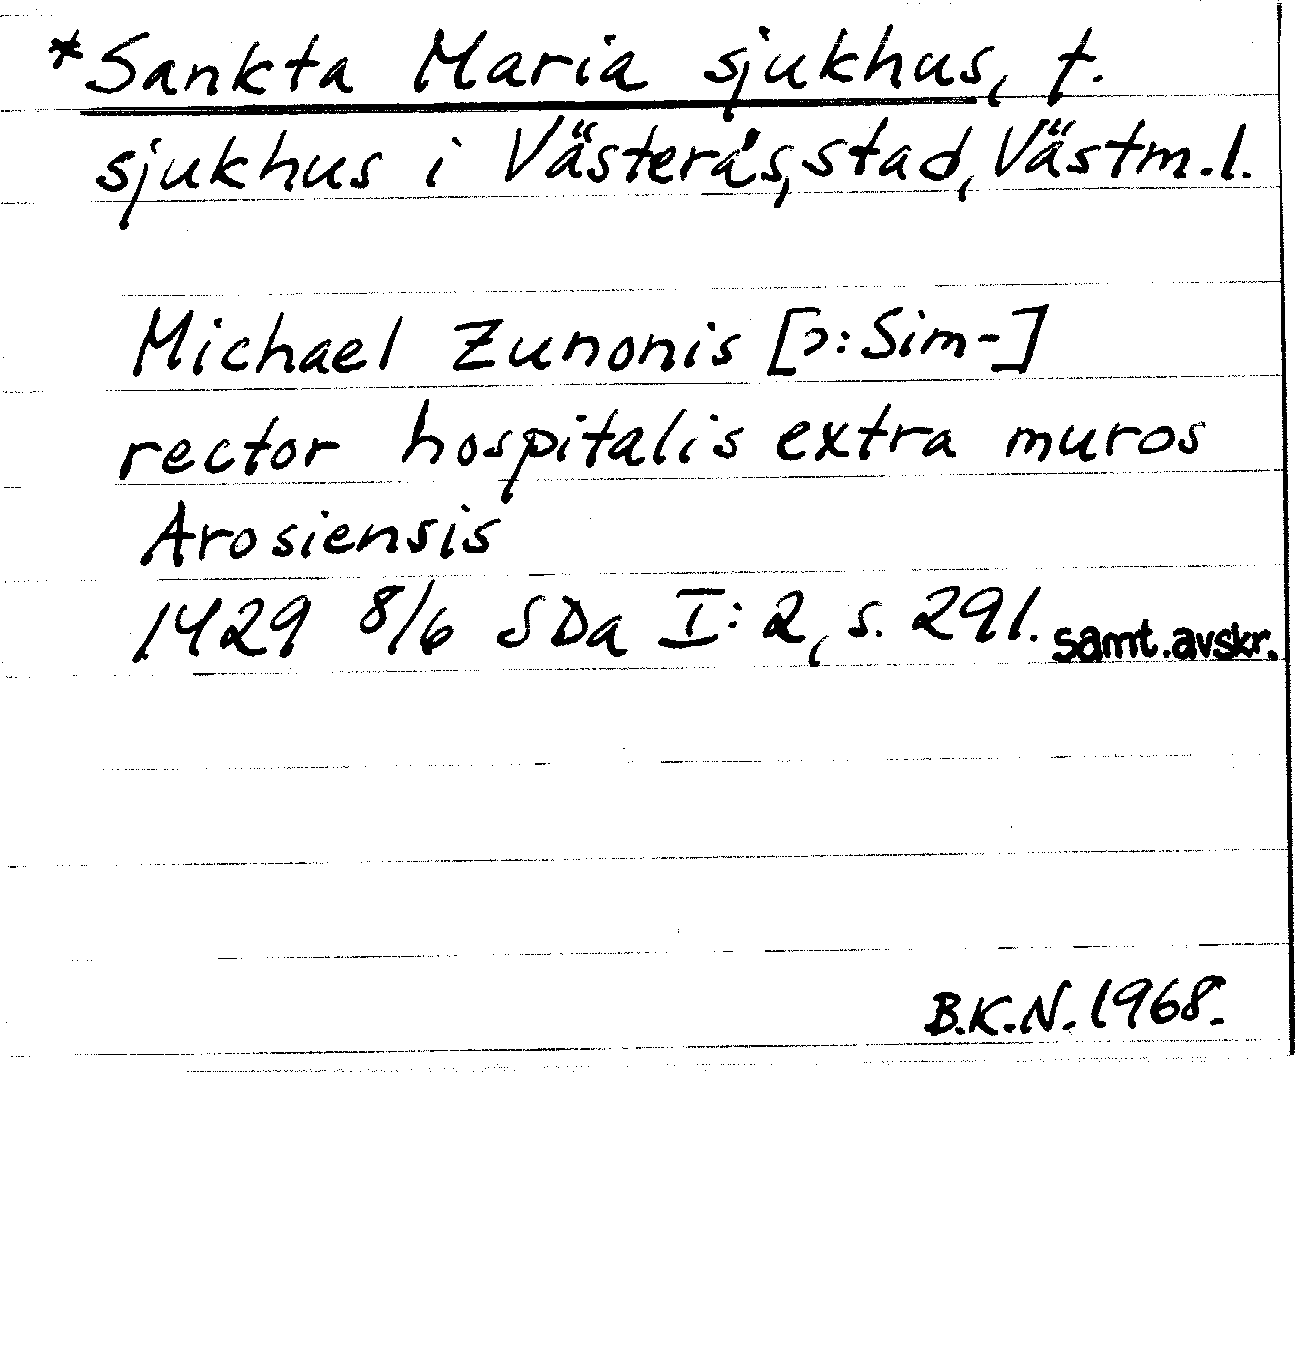 *Sankta Maria sjukhus, f.
sjukhus i Västerås, stad, Västm.l.
Michael Zunonis [ɔ: Sim-]
rector hospitalis extra muros
Arosiensis
1429 8/6 SDa I:2, s. 291. samt.avskr.
B.K.N. 1968.